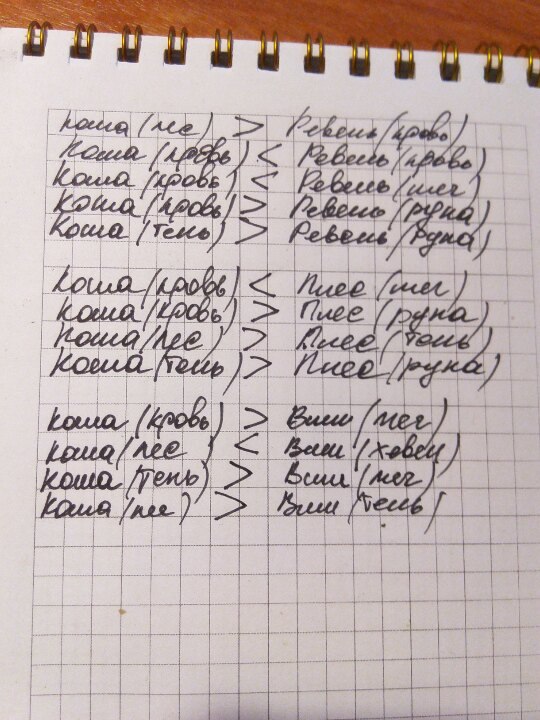 Каша (лес) > Ревень (кровь)
Каша (кровь) < Ревень (кровь)
Каша (кровь) < Ревень (меч)
Каша (кровь) > Ревень (руна)
Каша (тень) > Ревень (руна)
Каша (кровь) < Плес (меч)
Каша (кровь) > Плес (руна)
Каша (лес) > Плес (тень)
Каша (тень) > Плес (руна)
Каша (кровь) > Виш (меч)
Каша (лес < Виш (ховен)
Каша (тень) > Виш (меч)
Каша (лес) > Виш (тень)